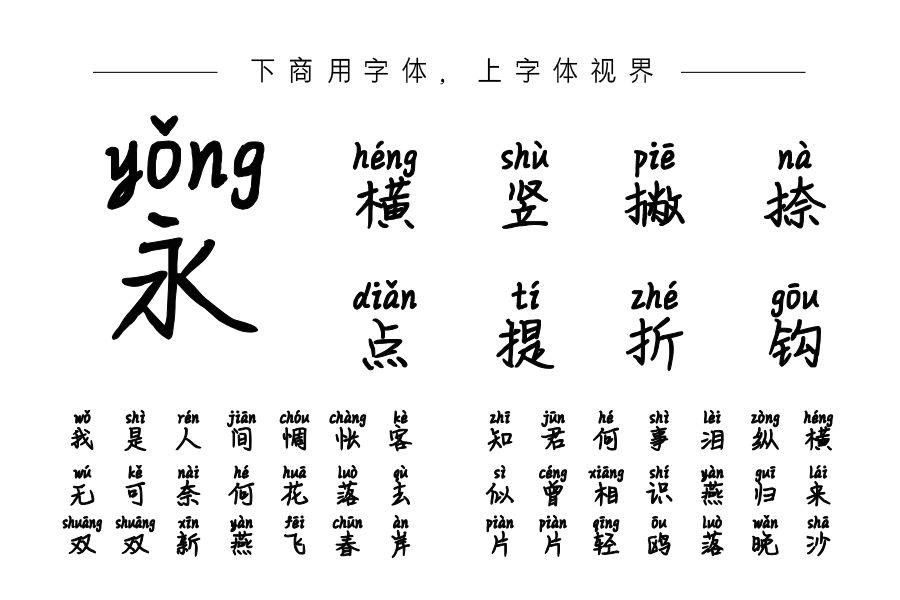 下商用字体，上字体视界
yǒng
永
héng shù piē nà
横 竖 撇 捺
diǎn tí zhé gōu
点 提 折 钩
wǒ shì rén jiān chóu chàng kè
我 是 人 间 惆 怅 客
wú kě nài hé huā luò qù
无 可 奈 何 花 落 去
shuāng shuāng xīn yàn fēi chūn àn
双 双 新 燕 飞 春 岸
zhī jūn hé shì lèi zòng héng
知 君 何 事 泪 纵 横
sì céng xiāng shí yàn guī lái
似 曾 相 识 燕 归 来
piàn piàn qīng ōu luò wǎn shā
片 片 轻 鸥 落 晚 沙